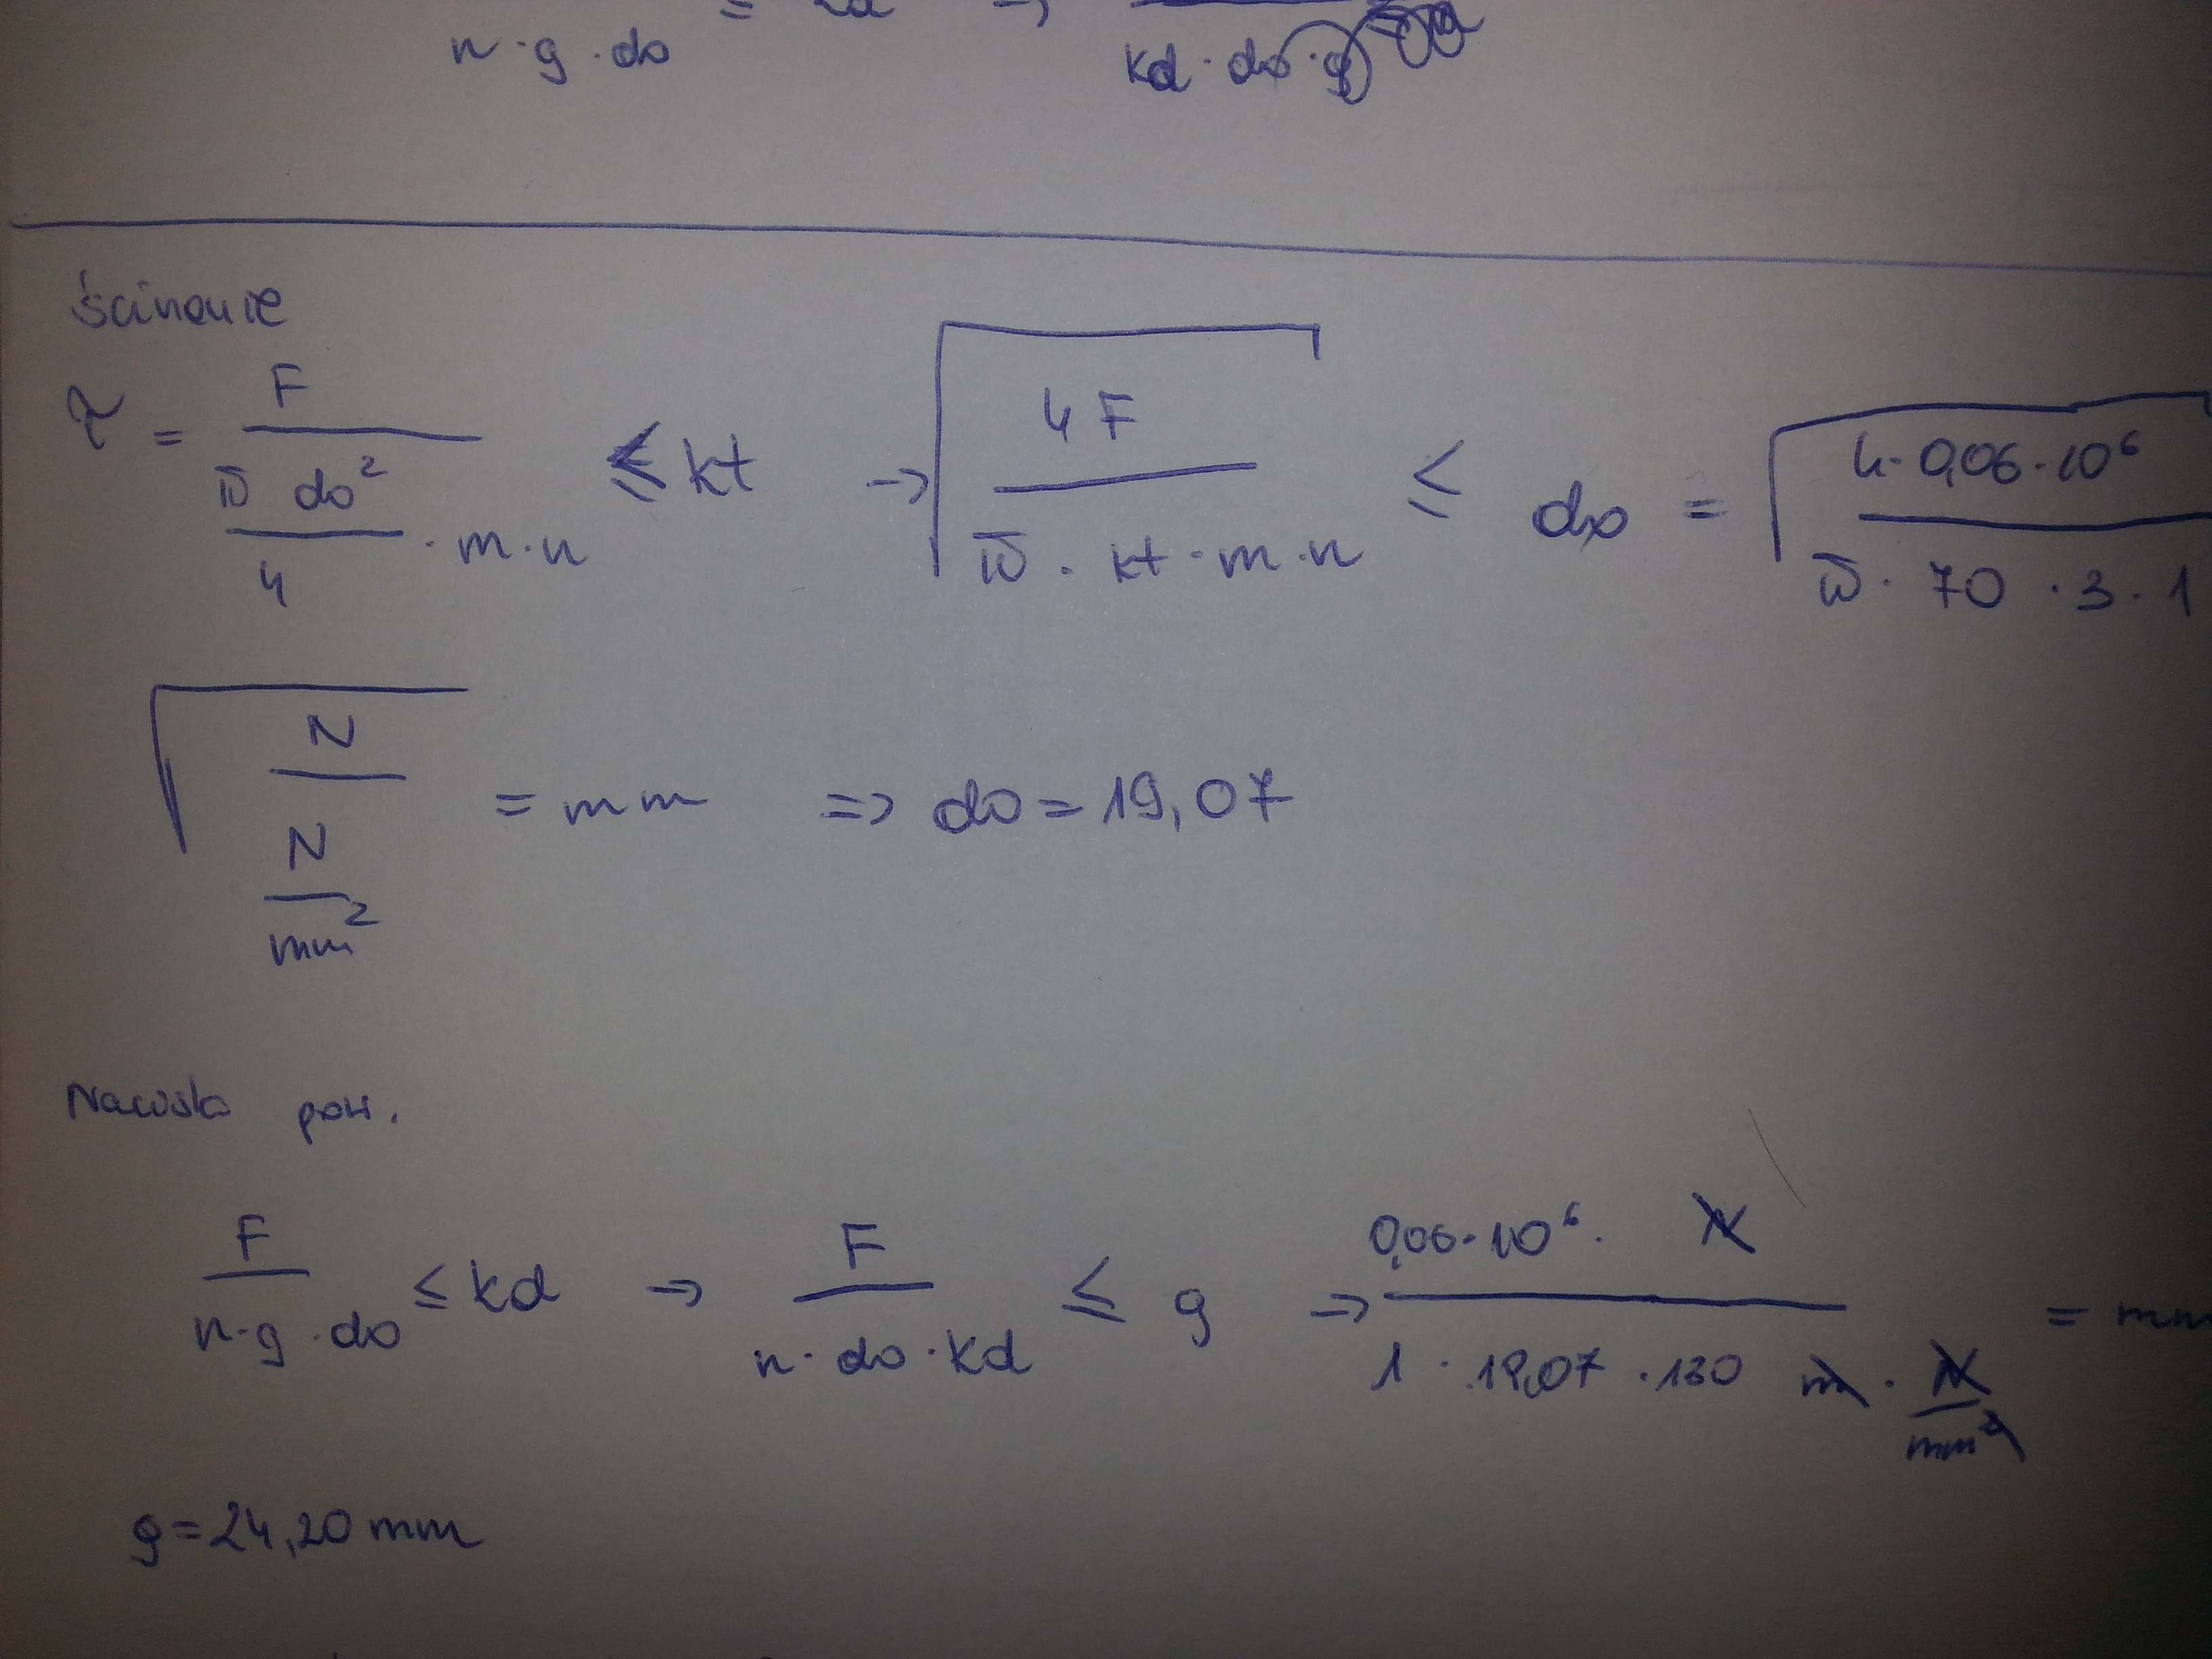 n · g · do = →
kd · do · g
ścinanie
τ = F / (π do² / 4 · m · n) ≤ kt → √(4F / (π · kt · m · n)) ≤ do = √(4 · 0,06 · 10⁶ / (π · 70 · 3 · 1
√(N / (N / mm²)) = mm => do = 19,07
Naciski pow.
F / (n · g · do) ≤ kd → F / (n · do · kd) ≤ g → 0,06 · 10⁶ · N / (1 · 19,07 · 130 m · N / mm²) = mm
g = 24,20 mm